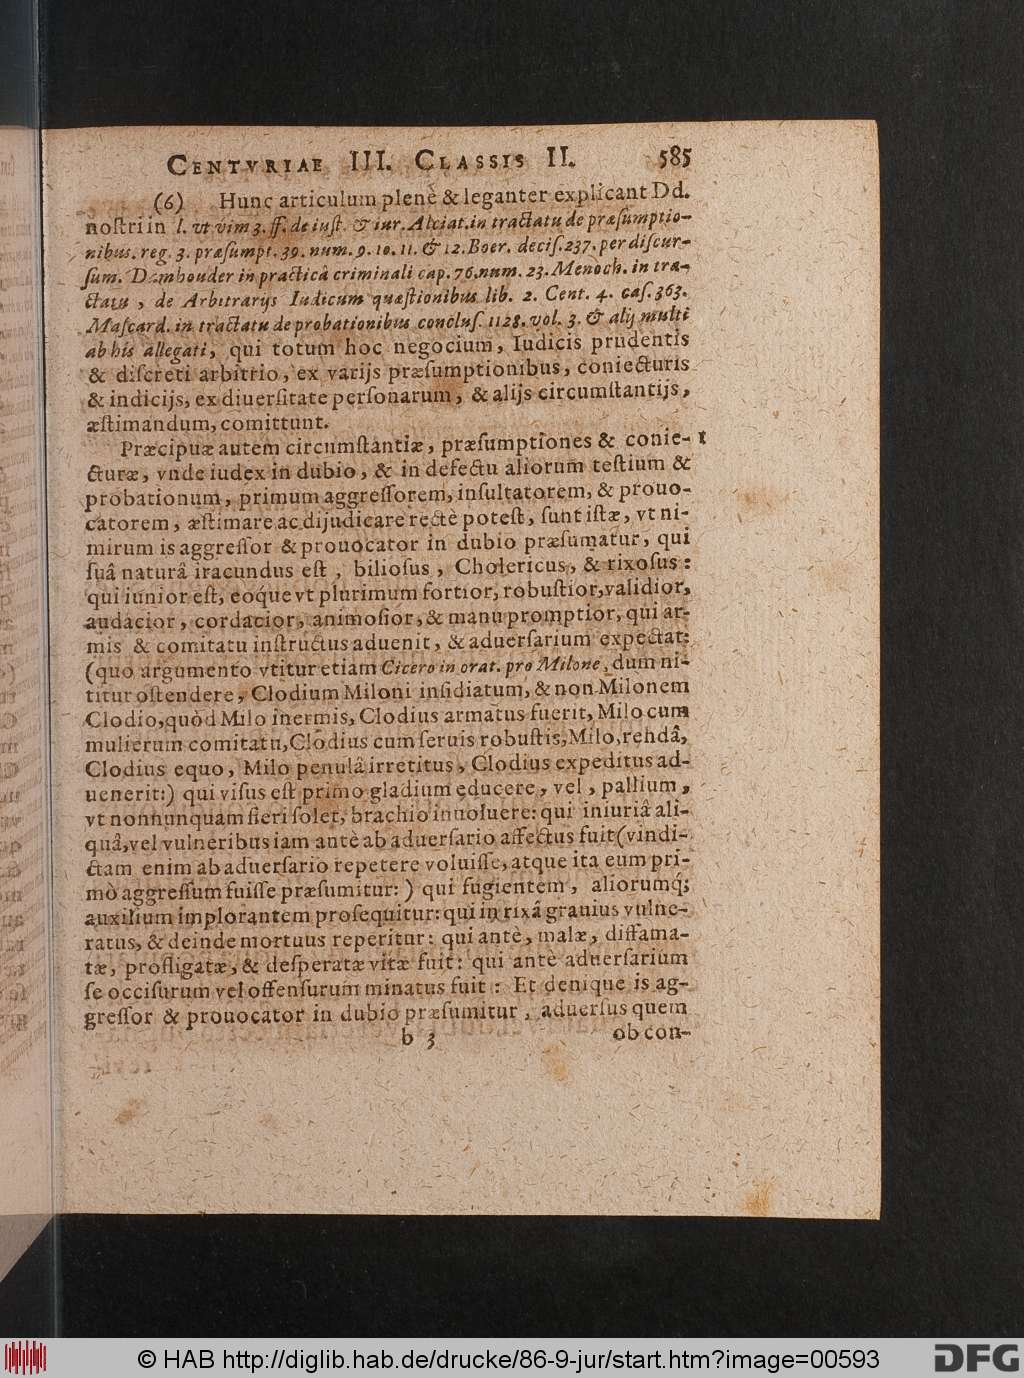 CENTVRIAE III. CLASSIS II. 585
(6) Hunc articulum plenè & leganter explicant Dd.
noſtri in l. vt vim 3. ff. de iuſt. & iur. Alciat. in tractatu de præſumptio-
nibus. reg. 3. præſumpt. 39. num. 9. 10. 11. & 12. Boer. deciſ. 237. per diſcur-
ſum. Damhouder in practicâ criminali cap. 76. num. 23. Menoch. in tra-
ctatu, de Arbitrarijs Iudicum quæſtionibus lib. 2. Cent. 4. caſ. 363.
Maſcard. in tractatu de probationibus concluſ. 1128. vol. 3. & alij multi
ab his allegati, qui totum hoc negocium, Iudicis prudentis
& diſcreti arbitrio, ex varijs præſumptionibus, coniecturis
& indicijs, ex diuerſitate perſonarum, & alijs circumſtantijs,
æſtimandum, comittunt.
Præcipuæ autem circumſtantiæ, præſumptiones & conie- 1
cturæ, vnde iudex in dubio, & in defectu aliorum teſtium &
probationum, primum aggreſſorem, inſultatorem, & prouo-
catorem, æſtimare ac dijudicare rectè poteſt, ſunt iſtæ, vt ni-
mirum is aggreſſor & prouocator in dubio præſumatur, qui
ſuâ naturâ iracundus eſt, bilioſus, Cholericus, & rixoſus:
qui iunior eſt, eoque vt plurimum fortior, robuſtior, validior,
audacior, cordacior, animoſior, & manu promptior, qui ar-
mis & comitatu inſtructus aduenit, & aduerſarium expectat:
(quo argumento vtitur etiam Cicero in orat. pro Milone, dum ni-
titur oſtendere, Clodium Miloni inſidiatum, & non Milonem
Clodio, quòd Milo inermis, Clodius armatus fuerit, Milo cum
mulierum comitatu, Clodius cum ſeruis robuſtis, Milo, rehdâ,
Clodius equo, Milo penulâ irretitus, Clodius expeditus ad-
uenerit:) qui viſus eſt primo gladium educere, vel, pallium,
vt nonnunquam fieri ſolet, brachio inuoluere: qui iniuriâ ali-
quâ, vel vulneribus iam antè ab aduerſario affectus fuit (vindi-
ctam enim ab aduerſario repetere voluiſſe, atque ita eum pri-
mò aggreſſum fuiſſe præſumitur:) qui fugientem, aliorumq́;
auxilium implorantem proſequitur: qui in rixâ grauius vulne-
ratus, & deinde mortuus reperitur: qui antè, malæ, diffama-
tæ, profligatæ, & deſperatæ vitæ fuit: qui antè aduerſarium
ſe occiſurum vel offenſurum minatus fuit: Et denique is ag-
greſſor & prouocator in dubio præſumitur, aduerſus quem
b 3 ob con-
© HAB http://diglib.hab.de/drucke/86-9-jur/start.htm?image=00593
DFG